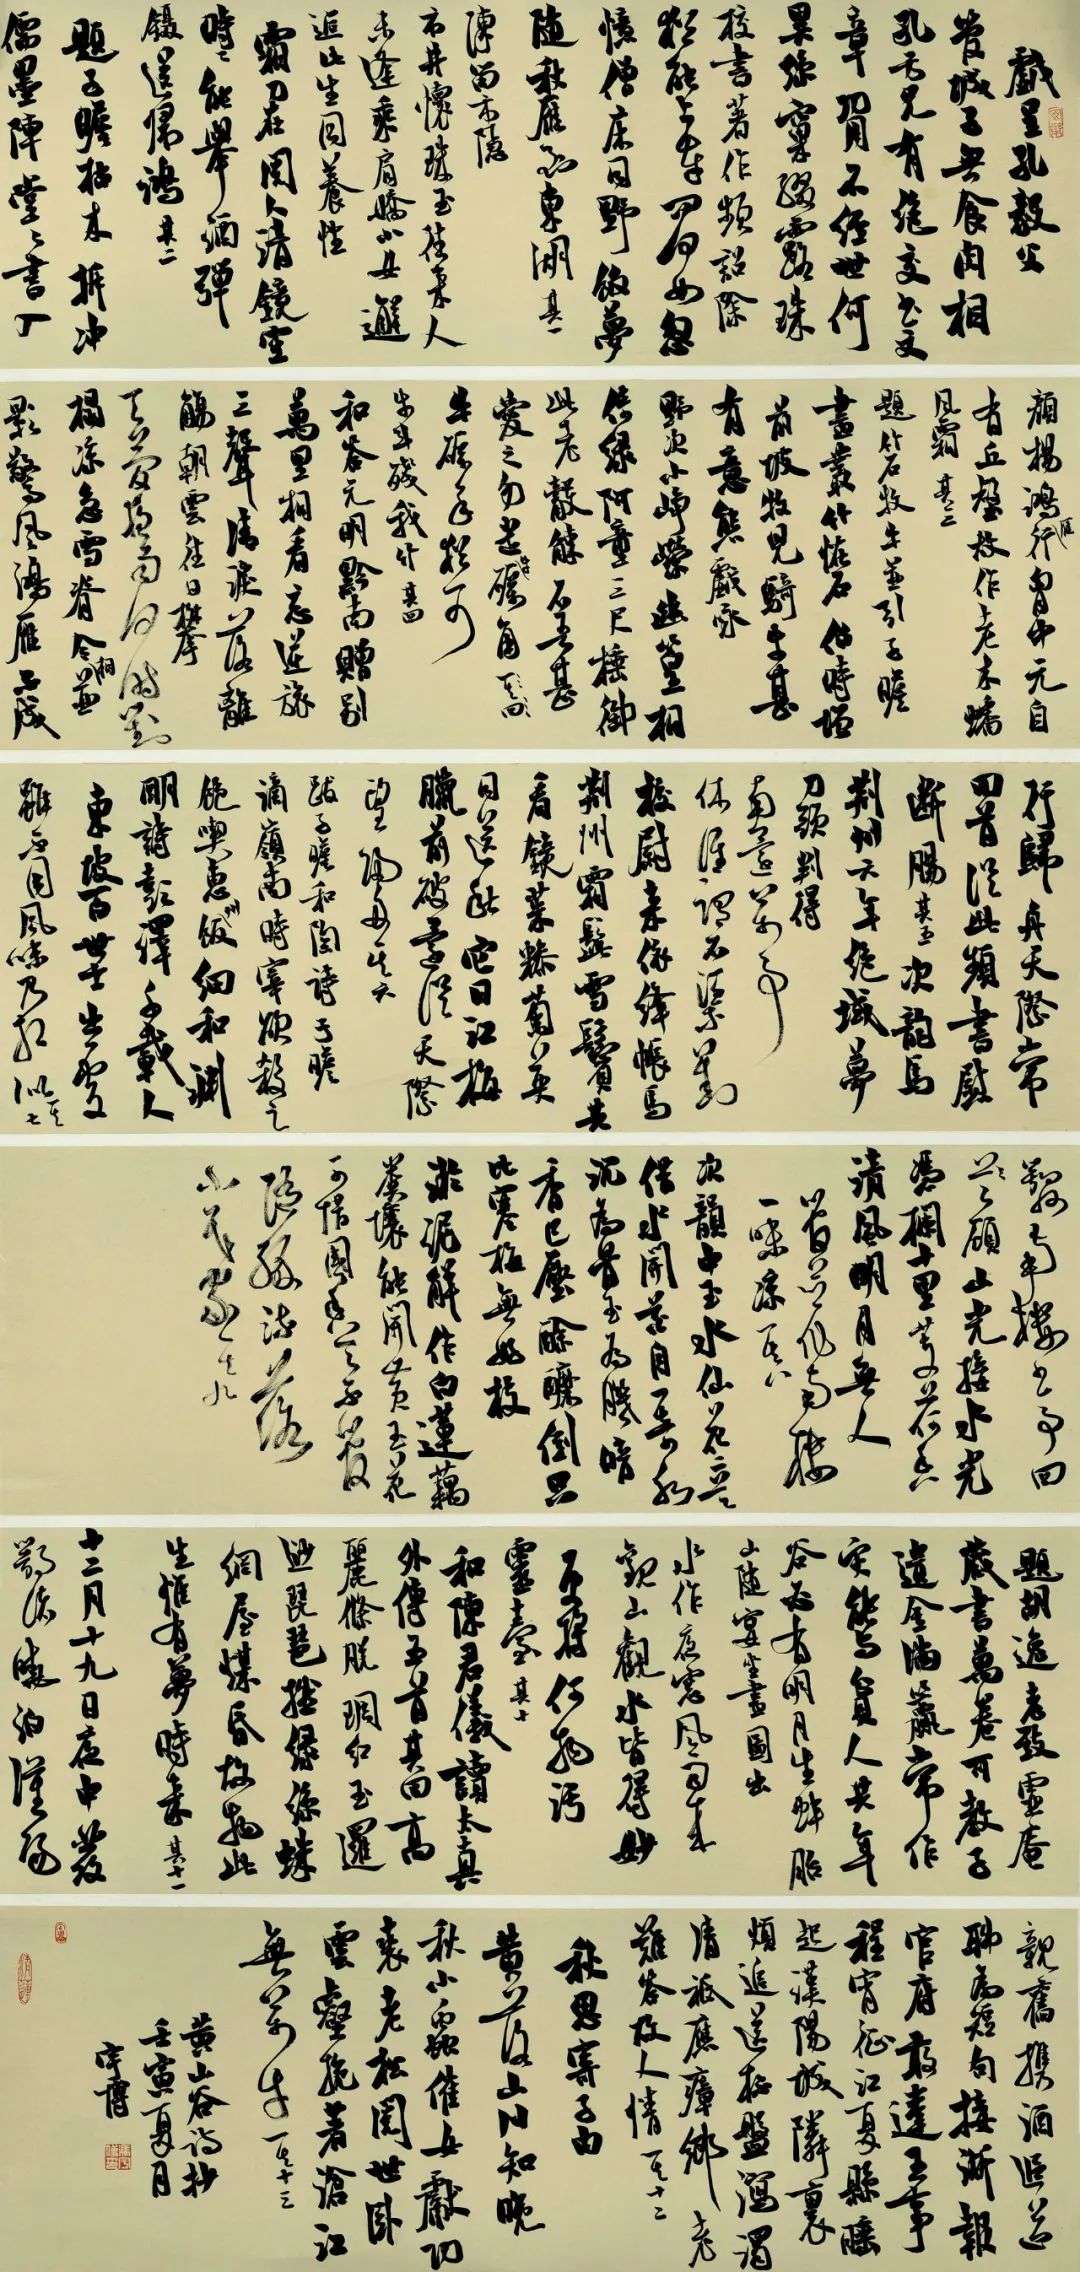 戲呈孔毅父
管城子無食肉相
孔方兄有絕交書文
章功用不經世何
異絲窠綴露珠
校書著作頻詔除
猶能上車問何如忽
憶僧床同野飯夢
隨秋雁到東湖 其一
陳留市隱
市井懷珠玉往來人
未逢乘肩嬌小女邂
逅此生同養性
霜刀在閱人清鏡空
時時能舉酒彈
鑷送歸鴻 其二
題子瞻枯木 折沖
儒墨陣堂堂書入
顏楊鴻雁行胸中元自
有丘壑故作老木蟠
風霜 其三
題竹石牧牛並引子瞻
畫叢竹怪石伯時增
前坡牧兒騎牛甚
有意態戲詠
野次小崢嶸幽篁相
倚綠阿童三尺棰御
此老觳觫石吾甚
愛之勿遣牛礪角
牛礪角猶可
牛斗殘我竹 其四
和答元明黔南贈別
萬里相看忘逆旅
三聲清淚落離
觴朝雲往日攀
天夢夜雨何時對
榻涼急雪脊令相並
影驚風鴻雁不成
行歸舟天際常
回首從此頻書慰
斷腸 其五 次韻馬
荊州 六年絕域夢
刀頭判得
南還萬事
休誰謂石渠劉
校尉來依絳帳馬
荊州霜髭雪鬢共
看鏡萸糝菊英
同送秋它日江梅
臘前破還從天際
望歸舟 其六
跋子瞻和陶詩 子瞻
謫嶺南時宰欲殺之
飽喫惠州飯細和淵
明詩彭澤千載人
東坡百世士出處
雖不同風味乃相似 其七
鄂州南樓書事 四
顧山光接水光
憑欄十里芰荷香
清風明月無人
管並作南樓
一味涼 其八
次韻中玉水仙花二首
借水開花自一奇水
沉為骨玉為肌暗
香已壓酴醾倒只
比寒梅無好枝
淤泥解作白蓮藕
糞壤能開黃玉花
可惜國香天不管
隨緣流落
小民家 其九
題胡逸老致虛庵
藏書萬卷可教子
遺金滿籯常作
災能與貧人共年
谷必有明月生蚌胎
山隨宴坐畫圖出
水作夜窗風雨來
觀山觀水皆得妙
更將何物污
靈臺 其十
和陳君儀讀太真
外傳五首其四 高
麗條脫琱紅玉邏
逤琵琶撚綠絲蛛
網屋煤昏故物此
生惟有夢時來 其十一
十二月十九日夜中發
鄂渚曉泊漢陽
親舊攜酒追送
聊為短句 接淅報
官府敢違王事
程宵征江夏縣睡
起漢陽城隣裏
煩追送杯盤瀉濁
清祇應瘴鄉老
難答故人情 其十二
秋思寄子由
黃落山川知晚
秋小蟲催女獻功
裘老松閱世臥
雲壑挽著滄江
無萬牛 其十三
黃山谷詩抄
壬寅夏月
宇博